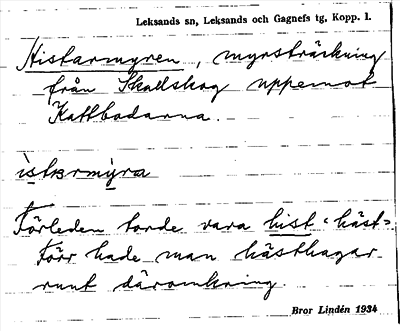 Leksands sn, Leksands och Gagnefs tg, Kopp. l.
Histarmyren, myrsträckning
från Skallskog uppemot
Kattbodarna.
ìstɐrmỳra
Förleden torde vara hist "häst".
Förr hade man hästhagar
runt däromkring.
Bror Lindén 1934